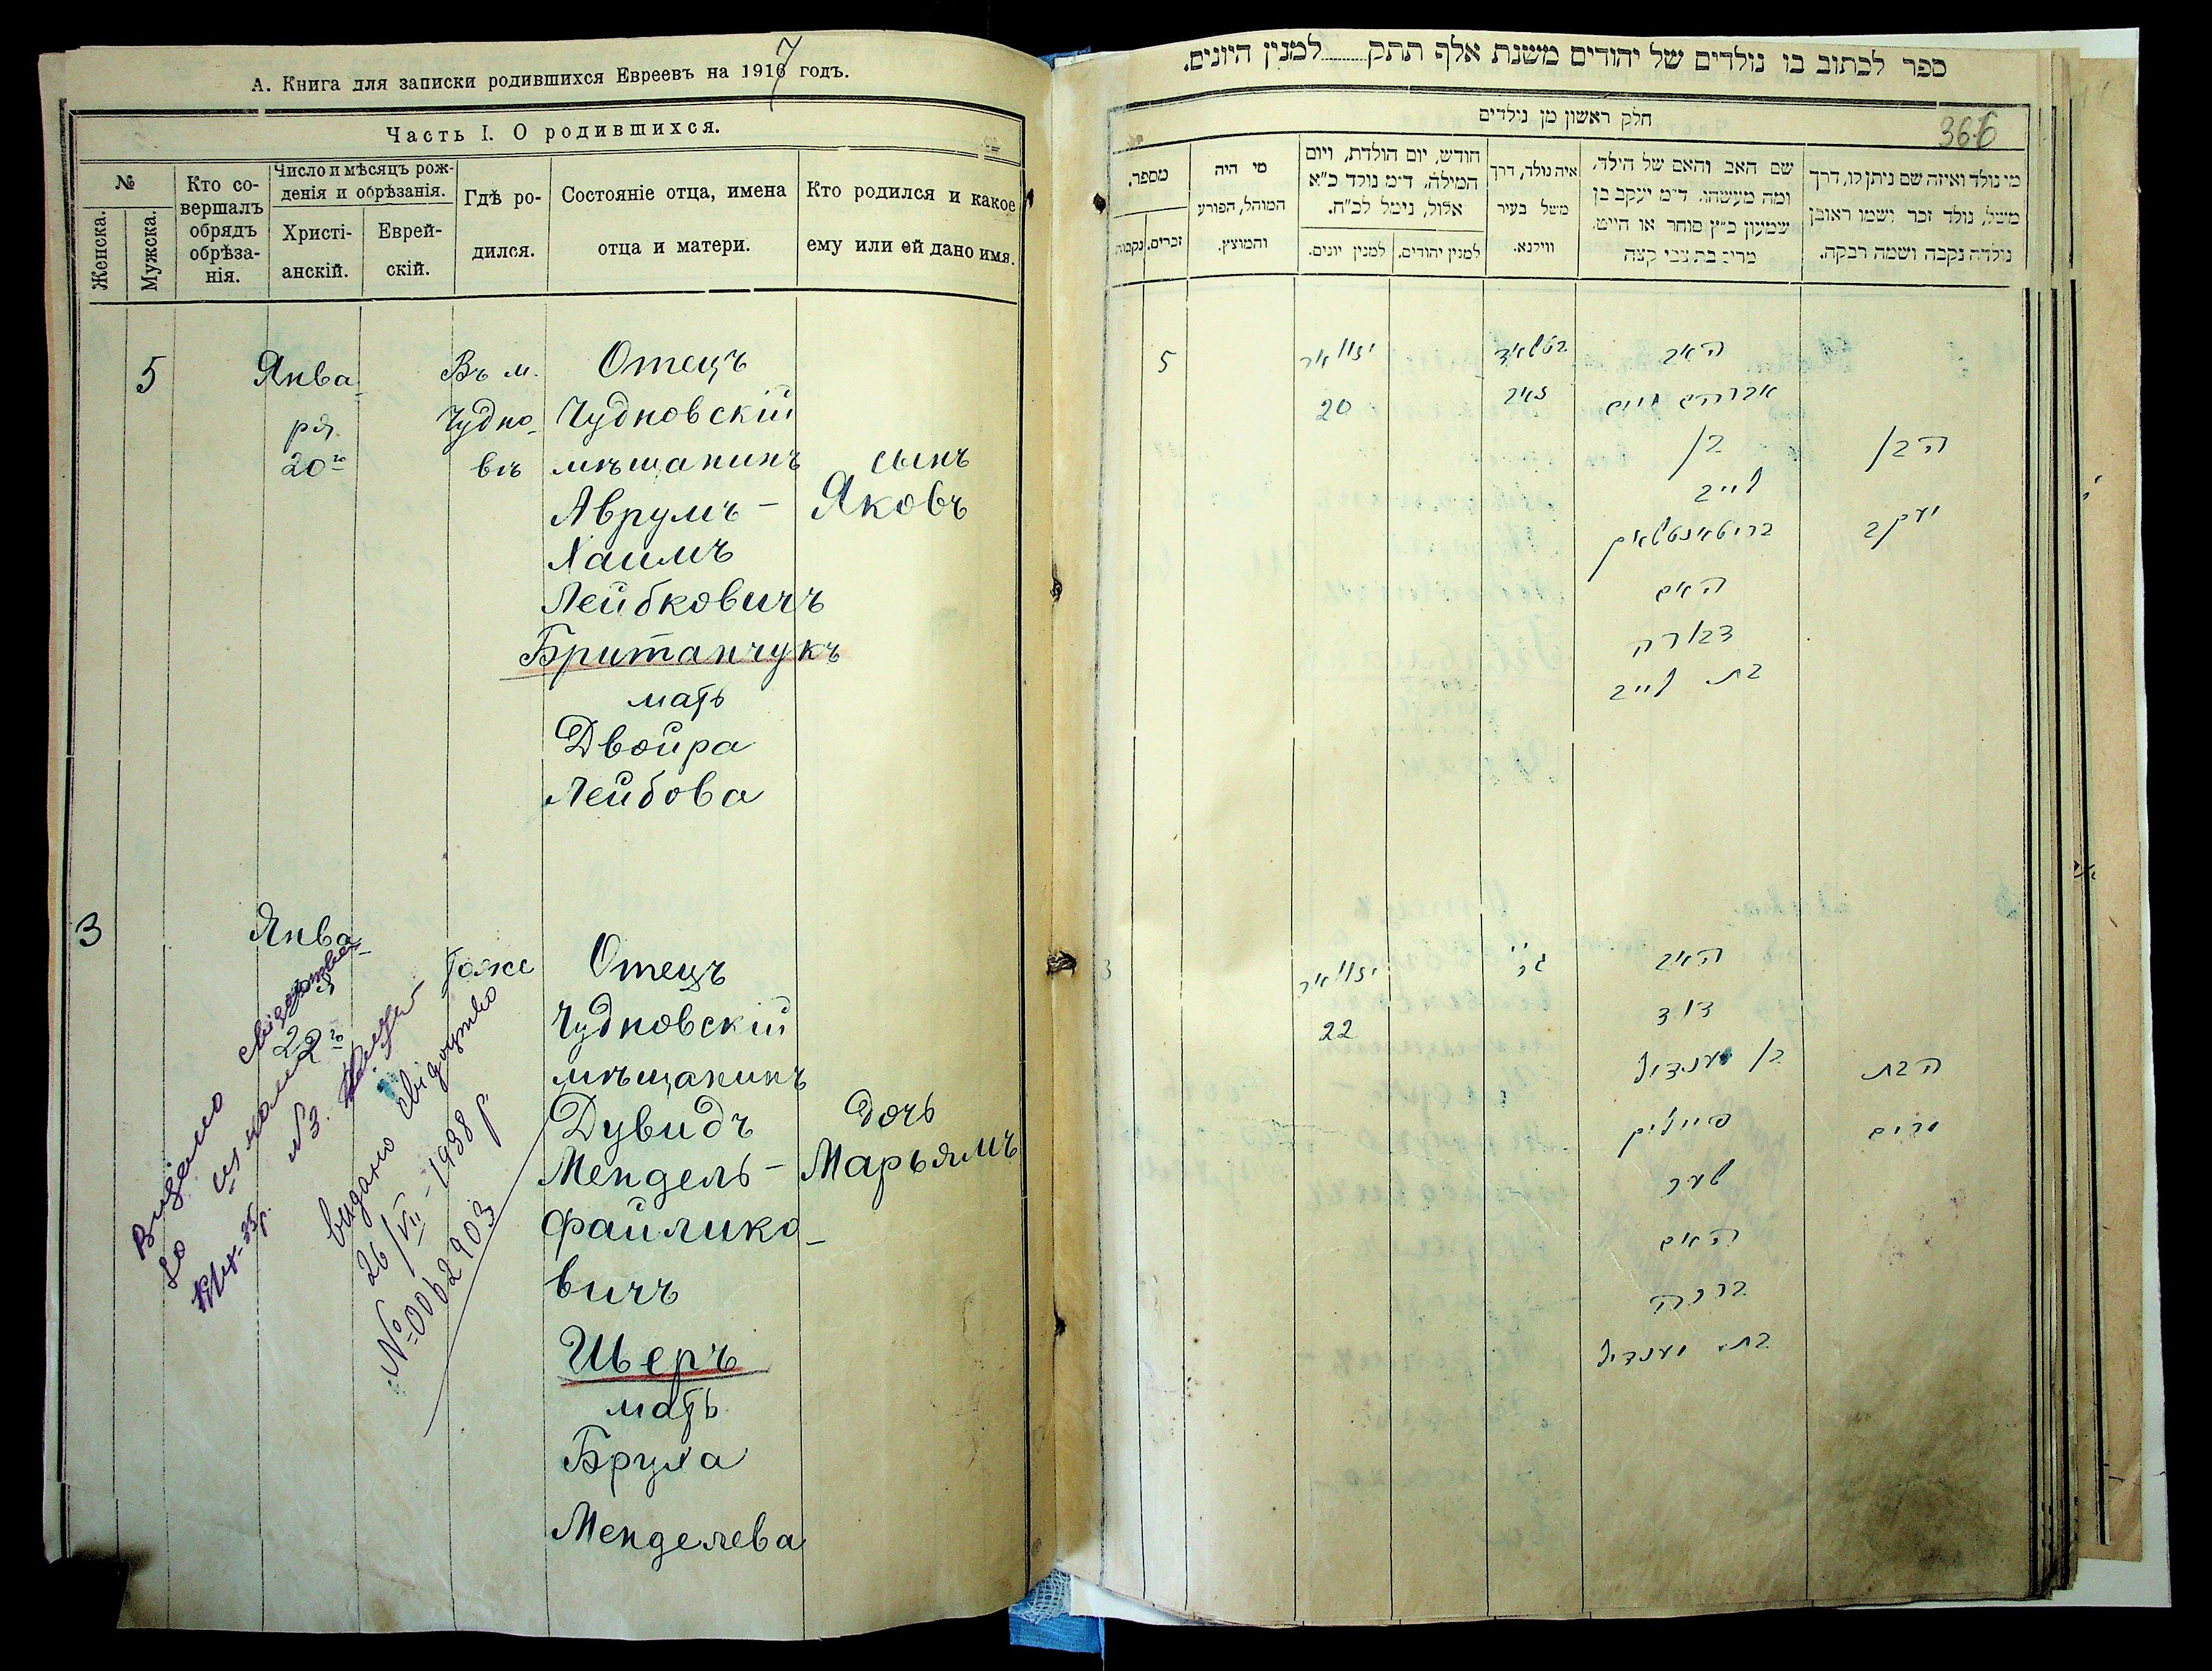 А. Книга для записки родившихся Евреевъ на 1917 годъ.
Часть I. О родившихся.
№
Женска.
Мужска.
Кто со-
вершалъ
обрядъ
обрѣза-
нія.
Число и мѣсяцъ рож-
денія и обрѣзанія.
Христі-
анскій.
Еврей-
скій.
Гдѣ ро-
дился.
Состояніе отца, имена
отца и матери.
Кто родился и какое
ему или ей дано имя.
5
Янва-
ря.
20го
Въ м.
Чудно-
вѣ
Отецъ
Чудновскій
мѣщанинъ
Аврумъ-
Хаимъ
Лейбковичъ
Британчукъ
мать
Двойра
Лейбова
сынъ
Яковъ
3
Янва-
ря
22го
Тоже
Отецъ
Чудновскій
мѣщанинъ
Дувидъ
Мендель-
Файлико-
вичъ
Шеръ
мать
Бруха
Менделева
дочь
Марьямъ
Видано
видано свідоцтво
26/VII-1938 р
№ 0062903
ספר לכתוב בו נולדים של יהודים משנת אלף תתק למנין היונים.
חלק ראשון מן נילדים
366
מספר.
זכרים.
נקבות
מי היה
המוהל, הפורע
והמוצץ.
חודש, יום הולדת, ויום
המילה. ד״מ נולד כ״א
אלול, נימל לכ״ח.
למנין יהודים.
למנין יונים.
איה נולד, דרך
משל בעיר
ווילנא.
שם האב והאם של הילד,
ומה מעשהו. ד״מ יעקב בן
שמעון כ״ץ סוחר או חייט.
מרים בת צבי קצה
מי נולד ואיזה שם ניתן לו, דרך
משל, נולד זכר ושמו ראובן
נולדה נקבה ושמה רבקה.
5
יאנואר
20
האב
אברהם חיים
בן
לייב
בריטאנטשוק
האם
דבורה
בת לייב
הבן
יעקב
3
יאנואר
22
האב
דוד
בן מענדיל
פייליק
שער
האם
ברכה
בת מענדיל
הבת
מרים